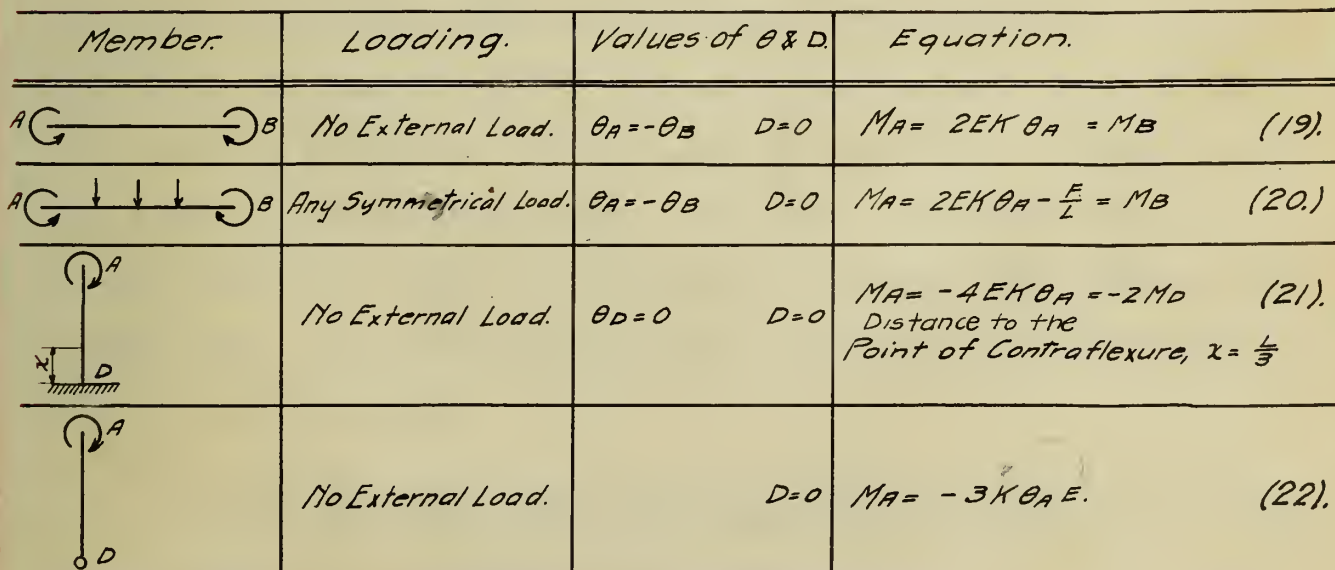 Member. Loading. Values of θ & D. Equation.
A B No External Load. θA = -θB D=0 MA = 2EKθA = MB (19).
A B Any Symmetrical Load. θA = -θB D=0 MA = 2EKθA - F/L = MB (20.)
A
x D
No External Load. θD = 0 D=0 MA = -4EKθA = -2MD (21).
Distance to the
Point of Contraflexure, x = L/3
A
No External Load. D=0 MA = -3KθAE. (22).
D